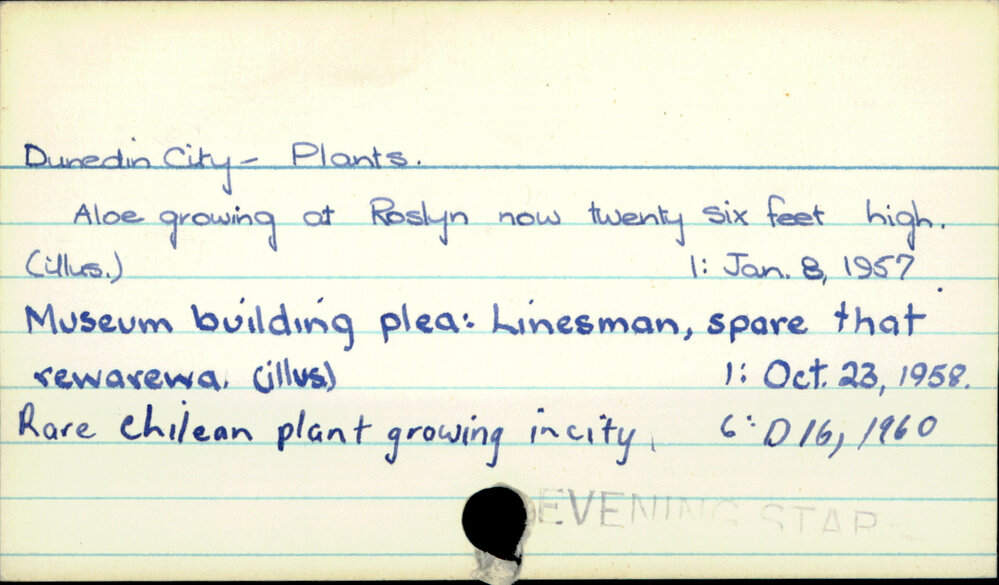 Dunedin City - Plants.
Aloe growing at Roslyn now twenty six feet high.
(illus.) 1: Jan. 8, 1957
Museum building plea: Linesman, spare that
rewarewa. (illus) 1: Oct. 23, 1958.
Rare Chilean plant growing in city. 6: D 16, 1960
EVENING STAR